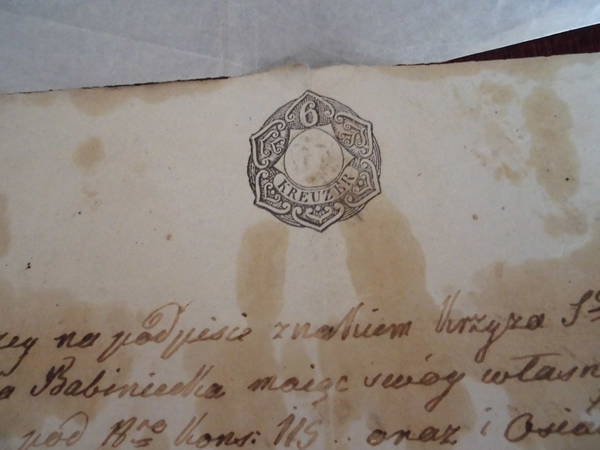 6
KREUZER
na podpisie znakiem Krzyża S
Babiniecka maiąc swóy własn
pod Nro Kons: 115 .. oraz i Osia